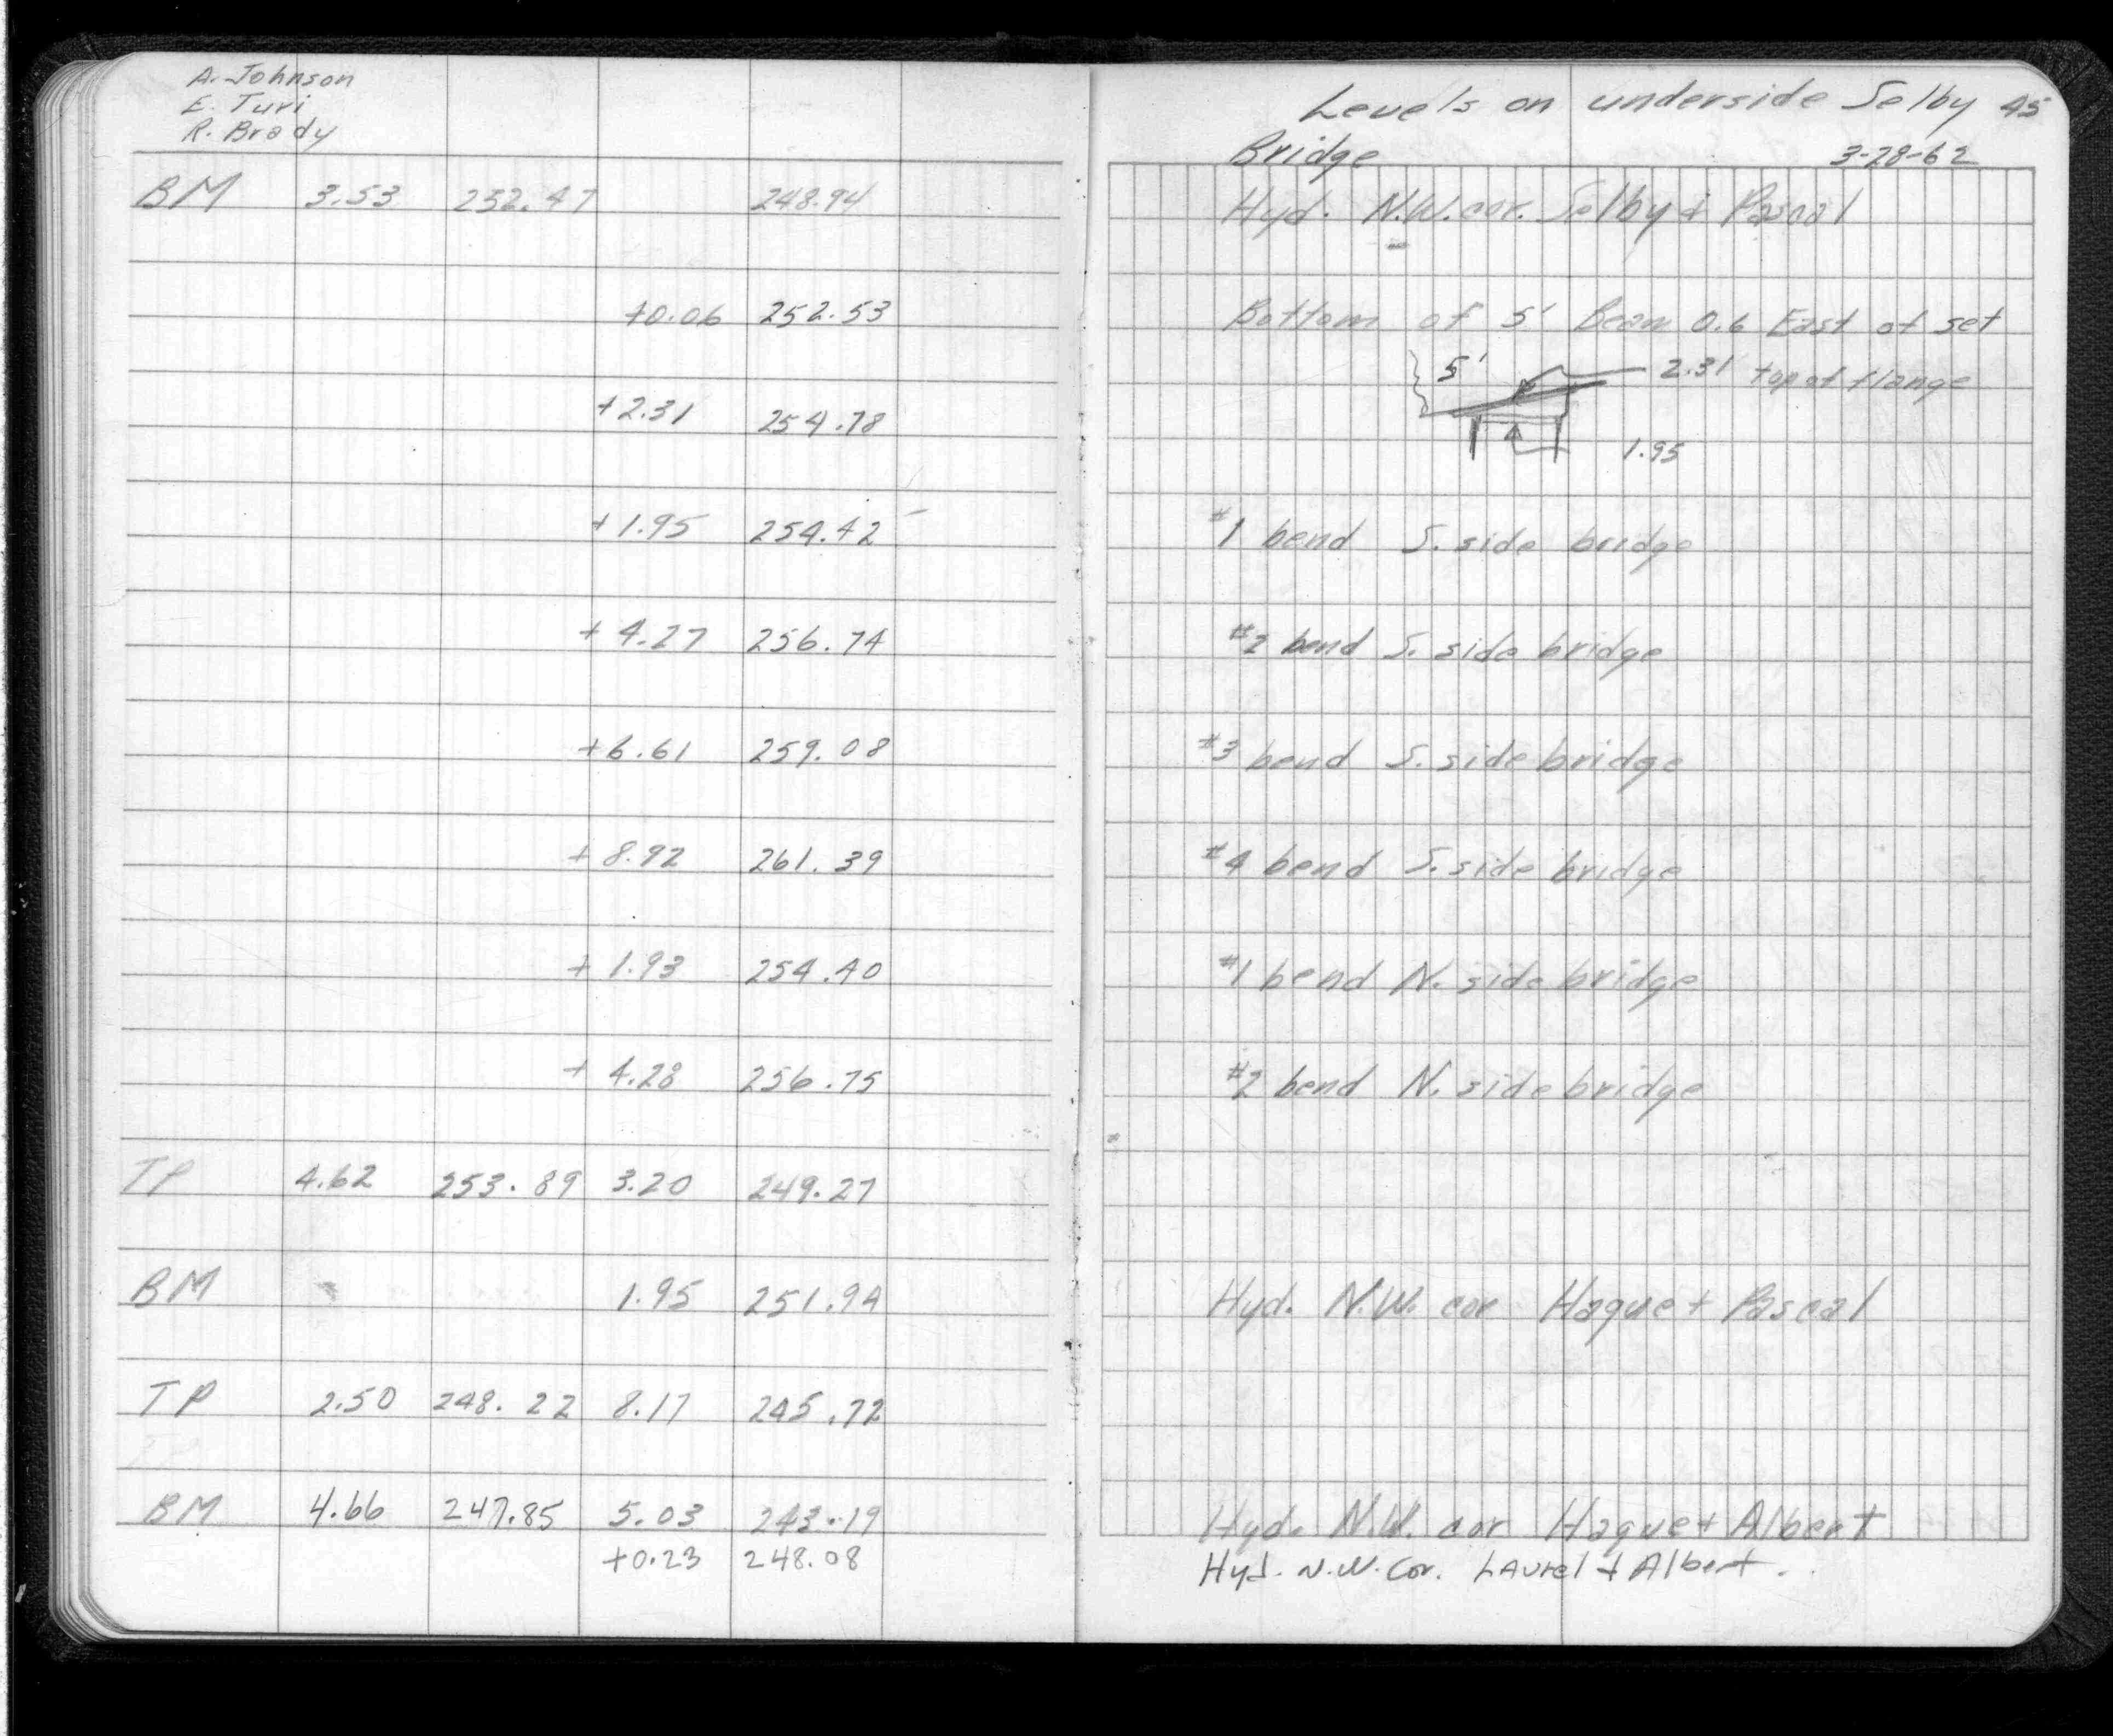 A. Johnson
E. Turi
R. Brady
Levels on underside Selby 45
Bridge 3-28-62
BM 3.53 252.47 248.94 Hyd. N.W. cor. Selby & Pascal
+0.06 252.53 Bottom of 5' Beam 0.6 East of set
5' 2.31 top of flange
+2.31 254.78
1.95
+1.95 254.42 #1 bend S. side bridge
+4.27 256.74 #2 bend S. side bridge
+6.61 259.08 #3 bend S. side bridge
+8.92 261.39 #4 bend S. side bridge
+1.93 254.40 #1 bend N. side bridge
+4.28 256.75 #2 bend N. side bridge
TP 4.62 253.89 3.20 249.27
BM 1.95 251.94 Hyd. N.W. cor Hague + Pascal
TP 2.50 248.22 8.17 245.72
BM 4.66 247.85 5.03 243.19 Hyd. N.W. cor Hague + Albert
+0.23 248.08 Hyd. N.W. Cor. Laurel + Albert.